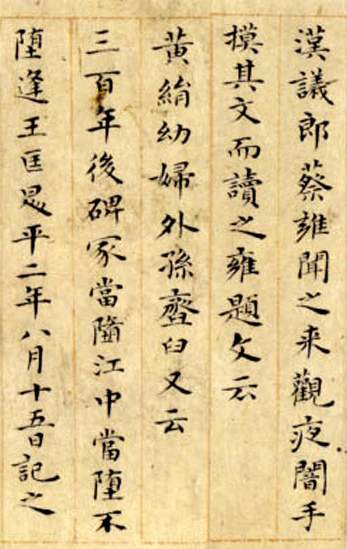 漢議郎蔡雍聞之来觀夜闇手
摸其文而讀之雍題文云
黃絹幼婦外孫齏臼又云
三百年後碑冢當墮江中當墮不
墮逢王匡昇平二年八月十五日記之